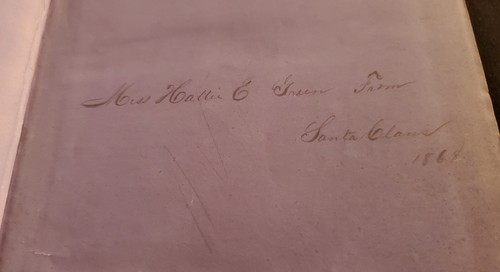 Miss Hattie E Green From
Santa Claus